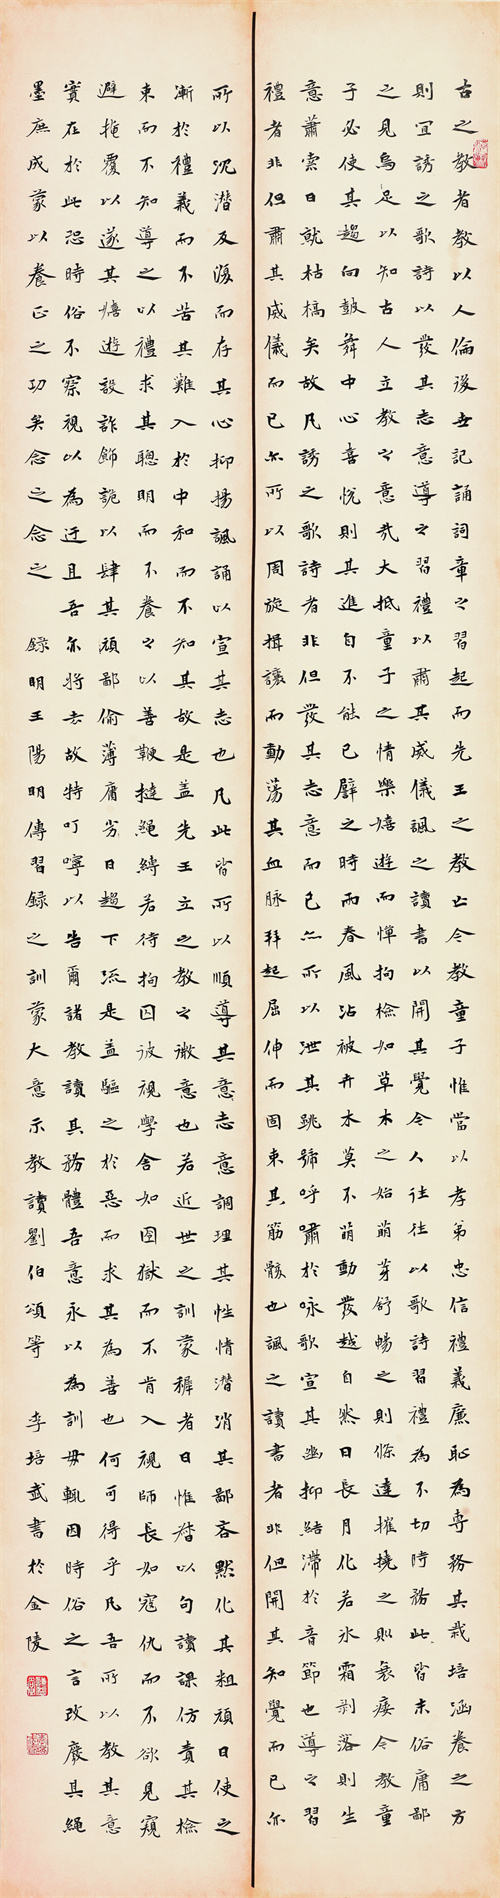 古之教者教以人倫後世記誦詞章之習起而先王之教亡今教童子惟當以孝弟忠信禮義廉恥為專務其栽培涵養之方
則宜誘之歌詩以發其志意導之習禮以肅其威儀諷之讀書以開其覺今人往往以歌詩習禮為不切時務此皆末俗庸鄙
之見烏足以知古人立教之意哉大抵童子之情樂嬉遊而憚拘檢如草木之始萌芽舒暢之則條達摧撓之則衰痿今教童
子必使其趨向鼓舞中心喜悅則其進自不能已譬之時雨春風沾被卉木莫不萌動發越自然日長月化若冰霜剝落則生
意蕭索日就枯槁矣故凡誘之歌詩者非但發其志意而已亦所以泄其跳號呼嘯於咏歌宣其幽抑結滯於音節也導之習
禮者非但肅其威儀而已亦所以周旋揖讓而動蕩其血脉拜起屈伸而固束其筋骸也諷之讀書者非但開其知覺而已亦
所以沉潛反復而存其心抑揚諷誦以宣其志也凡此皆所以順導其意志意調理其性情潛消其鄙吝默化其粗頑日使之
漸於禮義而不苦其難入於中和而不知其故是蓋先王立之教之微意也若近世之訓蒙穉者日惟督以句讀課仿責其檢
束而不知導之以禮求其聰明而不養之以善鞭撻繩縛若待拘囚彼視學舍如囹獄而不肯入視師長如寇仇而不欲見窺
避掩覆以遂其嬉遊設詐飾詭以肆其頑鄙偷薄庸劣日趨下流是蓋驅之於惡而求其為善也何可得乎凡吾所以教其意
實在於此恐時俗不察視以為迂且吾亦將去故特叮嚀以告爾諸教讀其務體吾意永以為訓毋輒因時俗之言改廢其繩
墨庶成蒙以養正之功矣念之念之 錄明王陽明傳習錄之訓蒙大意示教讀劉伯頌等 李培武書於金陵